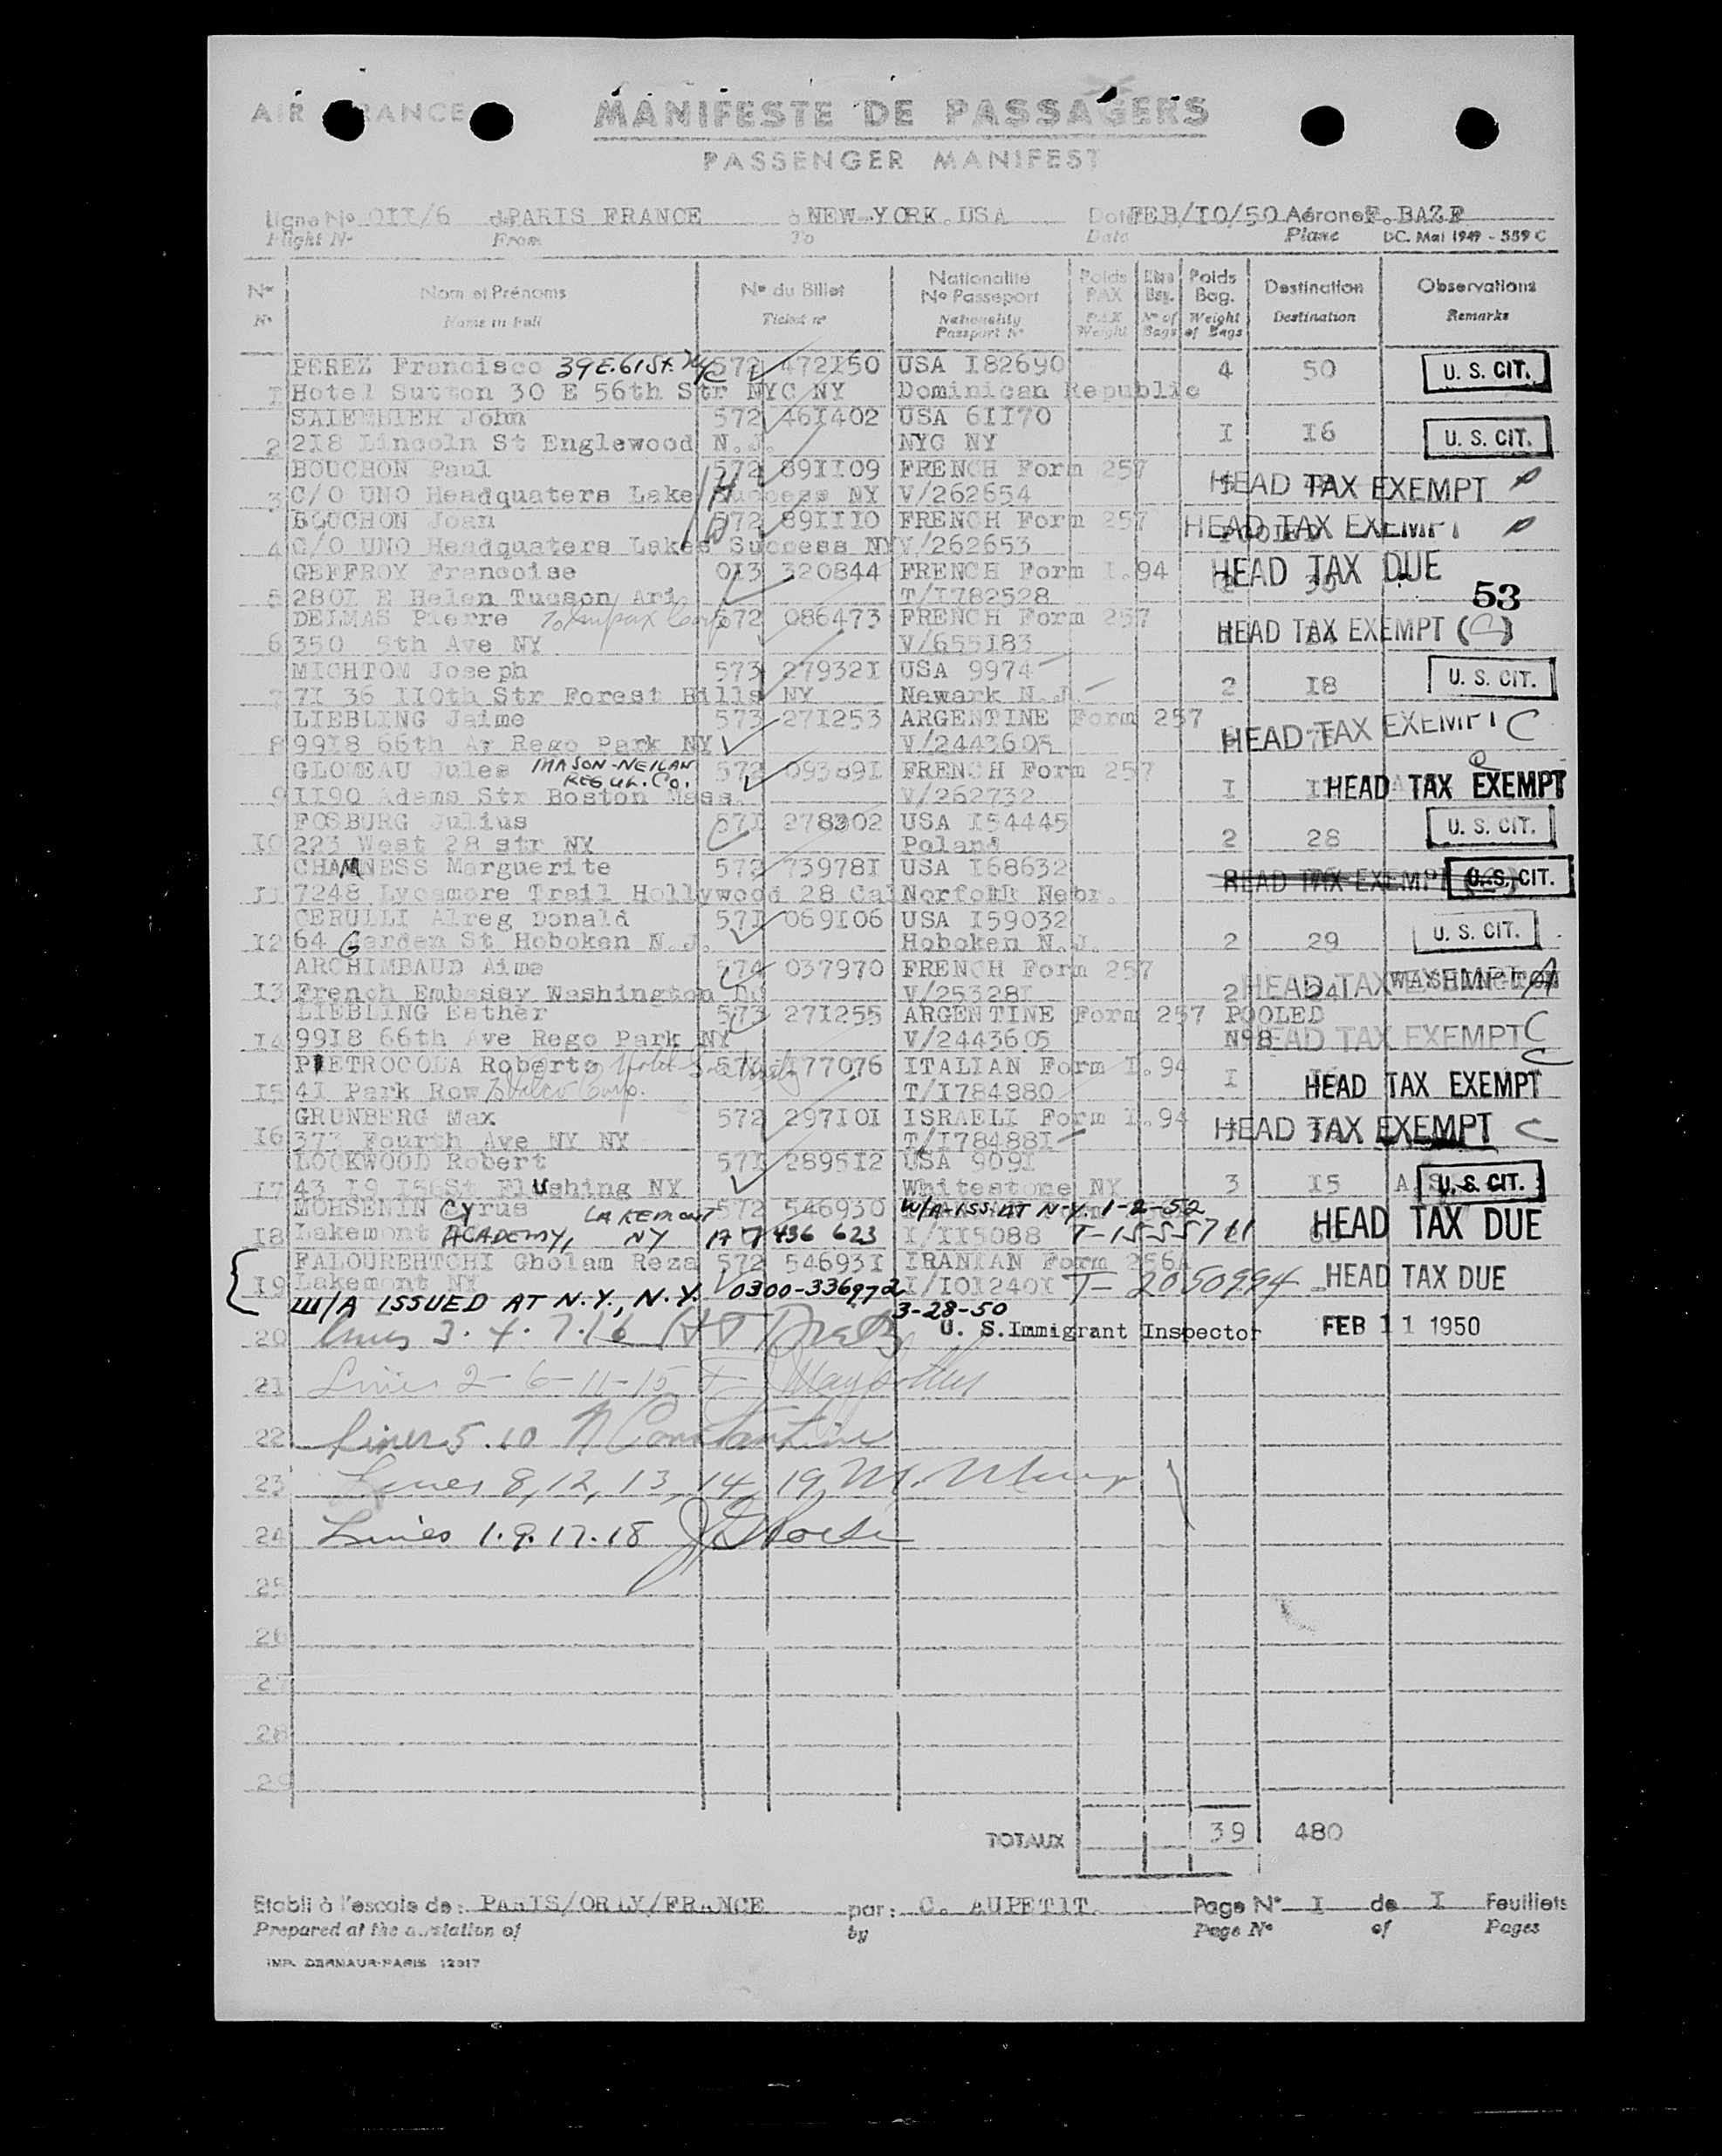 AIR FRANCE
MANIFESTE DE PASSAGERS
PASSENGER MANIFEST
Ligne No OII/6 de PARIS FRANCE à NEW YORK USA Date FEB/IO/50 Aéronef F.BAZF
Flight No From To Date Plane DC. Mai 1949 - 559 C
Nos Nom et Prénoms No du Billet Nationalité No Passeport Poids PAX Nbre Bag. Poids Bag. Destination Observations
No Name in Full Ticket no Nationality Passport No PAX Weight No of Bags Weight of Bags Destination Remarks
PEREZ Francisco 39 E. 61 St. NYC 572 472I50 USA I82690 4 50 U. S. CIT.
I Hotel Sutton 30 E 56th Str NYC NY Dominican Republic
SALEMBIER John 572 46I402 USA 6II70 I I6 U. S. CIT.
2 2I8 Lincoln St Englewood N.J. NYC NY
BOUCHON Paul 572 89II09 FRENCH Form 257 HEAD TAX EXEMPT
3 C/O UNO Headquaters Lake Success NY V/262654
BOUCHON Joan 572 89III0 FRENCH Form 257 HEAD TAX EXEMPT
4 C/O UNO Headquaters Lakes Success NY V/262653
GEFFROY Francoise 0I3 320844 FRENCH Form I.94 HEAD TAX DUE
5 280I E Helen Tucson Ari T/I782528 53
DELMAS Pierre 572 086473 FRENCH Form 257 HEAD TAX EXEMPT (C)
6 350 5th Ave NY V/655I83
MICHTOM Joseph 573 27932I USA 9974 2 I8 U. S. CIT.
7 7I 36 II0th Str Forest Hills NY Newark N.J.
LIEBLING Jaime 573 27I253 ARGENTINE Form 257 HEAD TAX EXEMPT C
8 99I8 66th Av Rego Park NY V/2443605
GLOMEAU Jules MASON-NEILAN REGUL. CO. 572 09389I FRENCH Form 257
9 II90 Adams Str Boston Mass. V/262732 I HEAD TAX EXEMPT
FOSBURG Julius 57I 278302 USA I54445 U. S. CIT.
I0 223 West 28 str NY Poland 2 28
CHAMNESS Marguerite 572 73978I USA I68632 HEAD TAX EXEMPT U. S. CIT.
II 7248 Lycamore Trail Hollywood 28 Cal Norfolk Nebr.
CERULLI Alreg Donald 57I 069I06 USA I59032 U. S. CIT.
I2 64 Garden St Hoboken N.J. Hoboken N.J. 2 29
ARCHIMBAUD Aime 574 037970 FRENCH Form 257 HEAD TAX EXEMPT WASHINGTON A
I3 French Embassy Washington DC V/25328I 2 24
LIEBLING Esther 573 27I255 ARGENTINE Form 257 POOLED
I4 99I8 66th Ave Rego Park NY V/2443605 N°8 HEAD TAX EXEMPT C
PIETROCOLA Roberto I77076 ITALIAN Form I.94 C
I5 4I Park Row T/I784880 I HEAD TAX EXEMPT
GRUNBERG Max 572 297I0I ISRAELI Form I.94 HEAD TAX EXEMPT C
I6 377 Fourth Ave NY NY T/I78488I
LOCKWOOD Robert 57I 2895I2 USA 909I
I7 43 I9 I56St Flushing NY Whitestone NY 3 I5 U. S. CIT.
MOHSENIN Cyrus LAKEMONT 572 546930 W/A-ISS. AT N-Y. 1-2-52
I8 Lakemont ACADEMY, NY A7 436 623 I/II5088 T-1555711 HEAD TAX DUE
FALOUREHTCHI Gholam Reza 572 54693I IRANIAN Form 256A
I9 Lakemont NY 0300-336972 I/I0I240I T-2050994 HEAD TAX DUE
W/A ISSUED AT N.Y., N.Y. 3-28-50
20 Lines 3. 4. 7. 16 U. S. Immigrant Inspector FEB 11 1950
21 Lines 2-6-11-15
22 Lines 5. 10 N Constantine
23 Lines 8, 12, 13, 14, 19, M.
24 Lines 1. 9. 17. 18
25
26
27
28
29
TOTAUX 39 480
Etabli à l'escale de: PARIS/ORLY/FRANCE par: C. AUPETIT. Page No I de I Feuillets
Prepared at the station of by Page No of Pages
IMP. DERMAUR-PARIS 12917